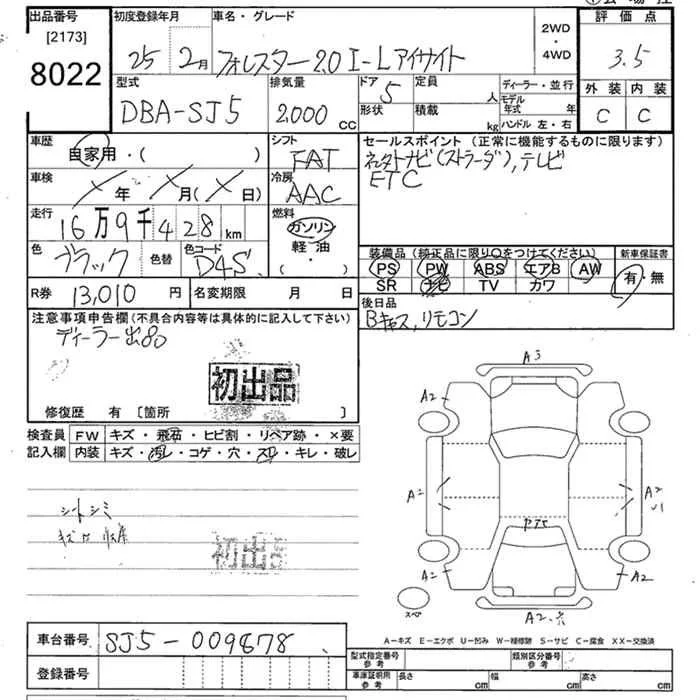 出品番号 初度登録年月 車名・グレード 評価点
[2173]
8022 25 2月 フォレスター 2.0 I-L アイサイト 2WD・4WD 3.5
型式 排気量 ドア 定員 ディーラー・並行 外装 内装
DBA-SJ5 2000 CC 5 人 モデル年式 年 C C
形状 積載 kg ハンドル 左・右
車歴 シフト セールスポイント (正常に機能するものに限ります)
自家用・( ) FAT ナビ(ストラーダ),テレビ
車検 冷房 ETC
年 月( 日) AAC
走行 燃料
16万9千428km ガソリン
色 色替 色コード 軽油・
ブラック D4S ( ・ )
装備品 (純正品に限り○をつけてください) 新車保証書
PS PW ABS エアB AW 有・無
SR ナビ TV カワ
R券 13,010円 名変期限 月 日 後日品
Bキャス,リモコン
注意事項申告欄(不具合内容等は具体的に記入して下さい)
ディーラー出80
初出品
修復歴 有 [箇所 ]
検査員 FW キズ・飛石・ヒビ割・リペア跡・×要
記入欄 内装 キズ・汚レ・コゲ・穴・スレ・キレ・破レ
シートシミ
初出品
A3
A2
A2
A2
A2
A2
スペア
A-キズ E-エクボ U-凹み W-補修跡 S-サビ C-腐食 XX-交換済
車台番号 SJ5-009878
登録番号
型式指定番号 参考 類別区分番号 参考
車庫証明用 参考 長さ cm 幅 cm 高さ cm